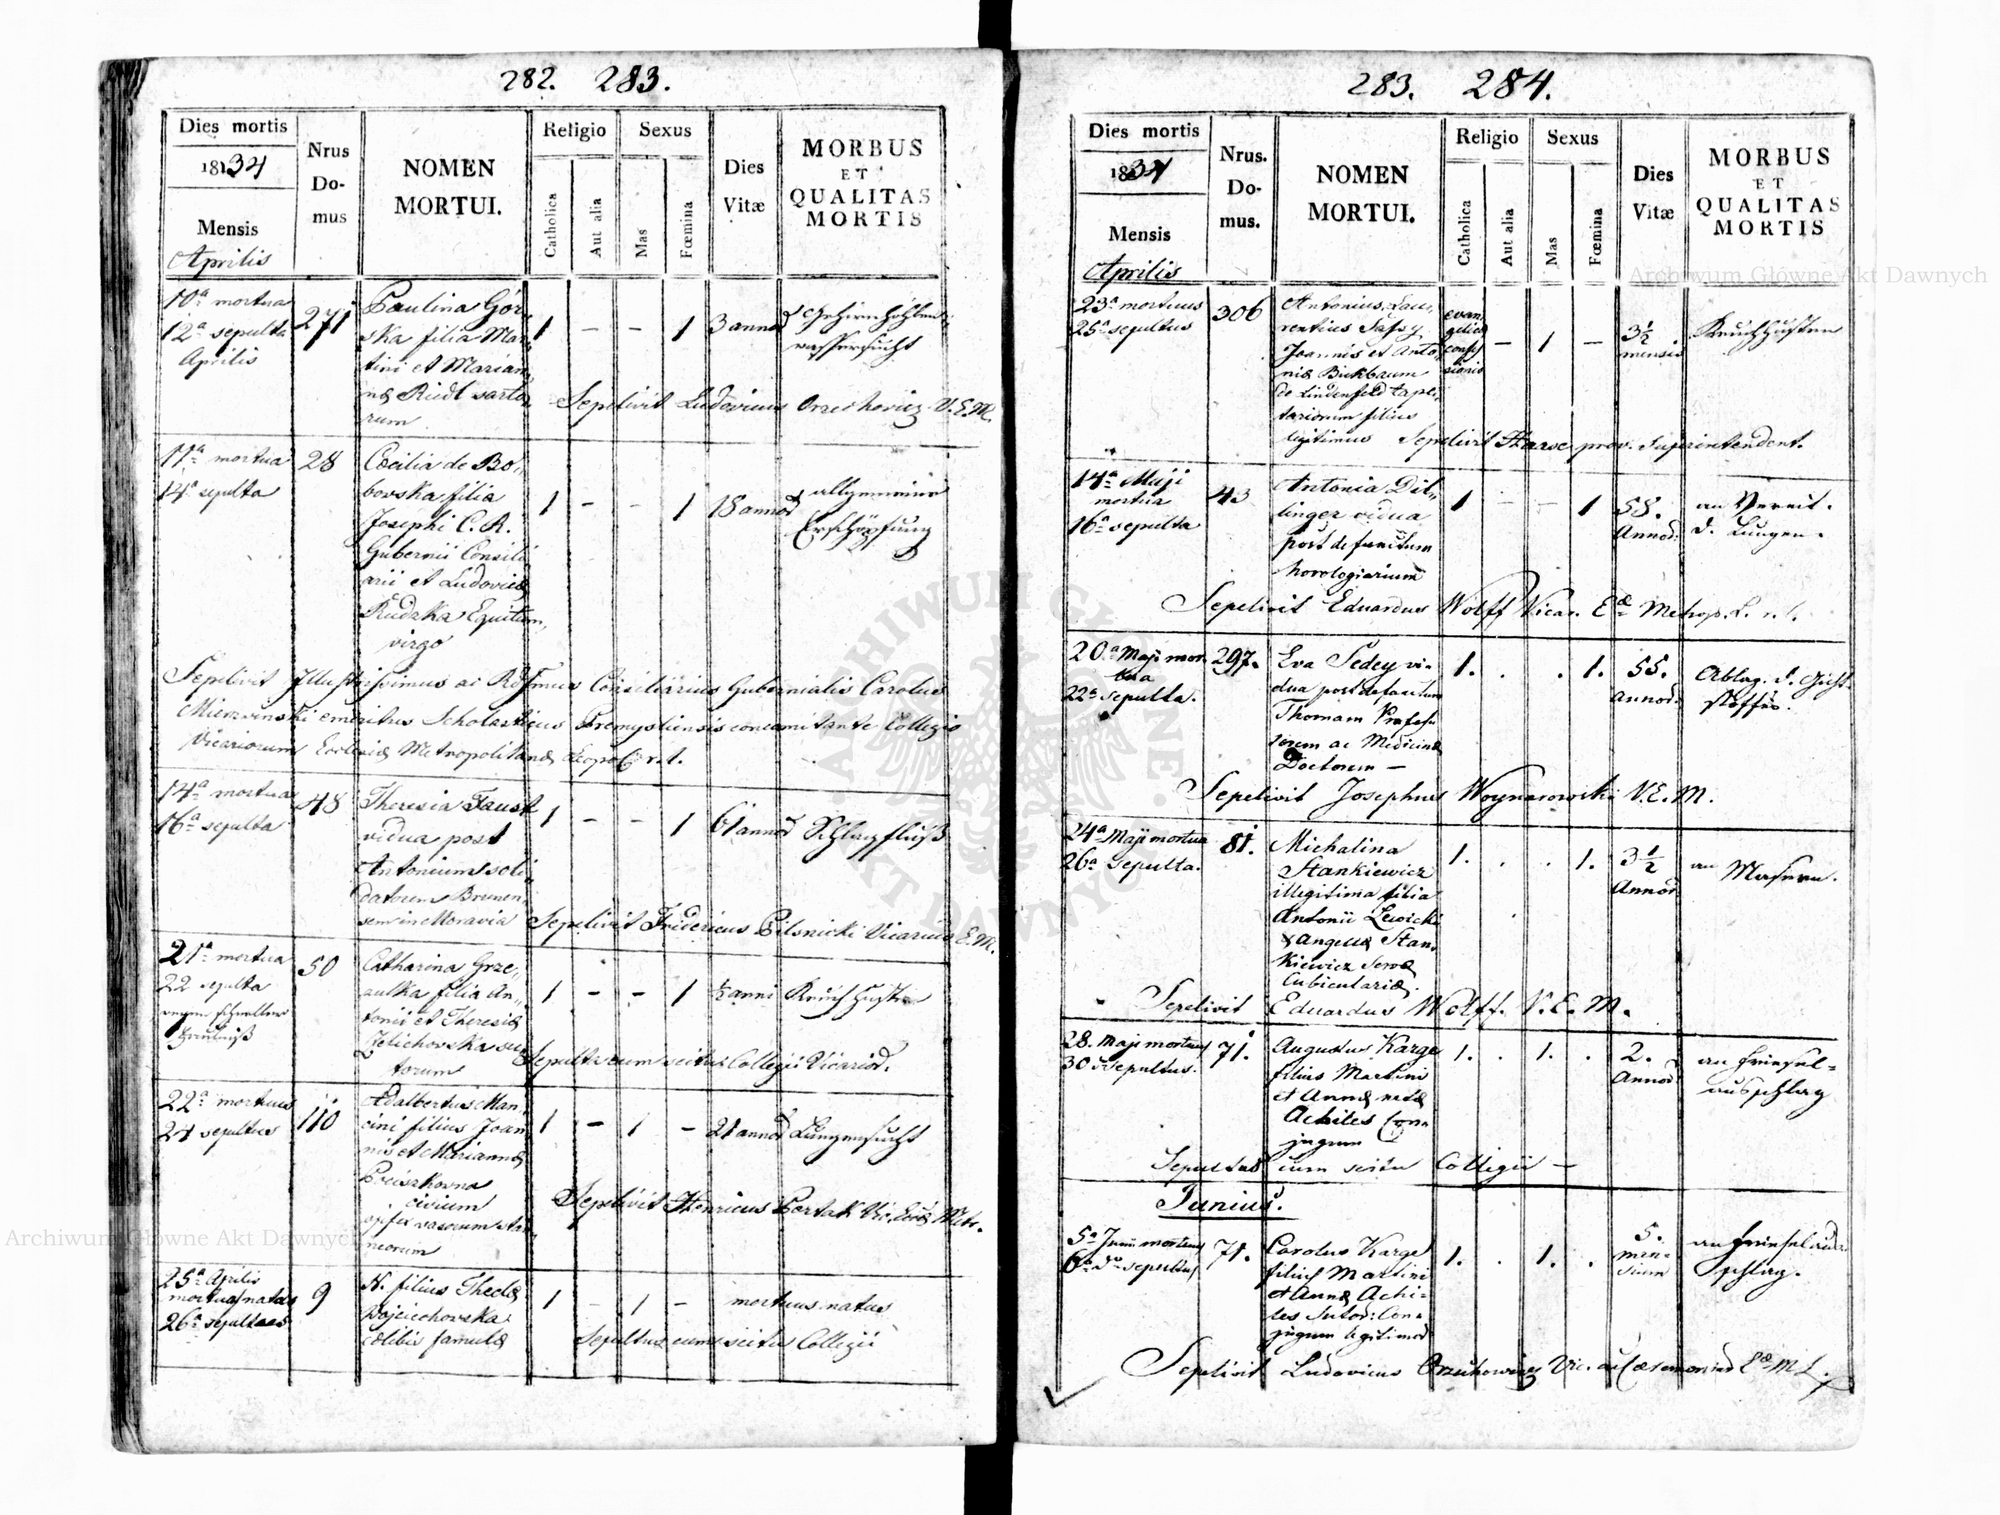 282. 283.
Dies mortis
1834
Mensis
Aprilis
Nrus Do- mus
NOMEN MORTUI.
Religio
Catholica
Aut alia
Sexus
Mas
Fœmina
Dies Vitæ
MORBUS ET QUALITAS MORTIS
10a mortua
12a sepulta
Aprilis
271
Paulina Gór-
ska filia Mar-
tini et Marian-
næ Riedl sarto-
rum
1 - - 1
3 annor
Gehirnhöhlen-
wassersucht
Sepelivit Ludovicus Orzechovicz V.E.M.
11a mortua
14a sepulta
28
Cæcilia de Bo-
bovska filia
Josephi C. R.
Gubernii Consili
arii et Ludovicæ
Rudzka Equitum,
virgo
1 - - 1
18 annor
allgemeine
Erschöpfung
Sepelivit Illustrissimus ac Rdssmus Consiliarius Gubernialis Carolus
Mierzvinski emeritus Scholasticus Premysliensis concomitante Collegio
Vicariorum Ecclesiæ Metropolitanæ Leopol. r. l.
14a mortua
16a sepulta
48
Theresia Faust
vidua post
Antonium soli
datorem Brunen
sem in Moravia
1 - - 1
61 annor
Schlagfluß
Sepelivit Fridericus Pilsnicki Vicarius E.M.
21a mortua
22 sepulta
wegen schneller
Fäulniß
50
Catharina Grze-
zulka filia An-
tonii et Theresiæ
Zelichovska su
torum
1 - - 1
½ anni
Keuchhusten
Sepulta cum scitu Collegii Vicarior.
22a mortuus
24 sepultus
110
Adalbertus Man-
cini filius Joan
nis et Mariannæ
civium
opifex vasorum stan
neorum
1 - 1 -
21 annor
Lungensucht
Sepelivit Henricus Bartak Vic. Eccl. Metr.
25a Aprilis
mortuus natus
26a sepultus
9
N. filius Theclæ
Wojciechovska
cælibis famulæ
1 - 1 -
mortuus natus
Sepultus cum scitu Collegii
283. 284.
Dies mortis
1834
Mensis
Aprilis
Nrus. Do- mus.
NOMEN MORTUI.
Religio
Catholica
Aut alia
Sexus
Mas
Fœmina
Dies Vitæ
MORBUS ET QUALITAS MORTIS
23a mortuus
25a sepultus
306
Antonius Lau-
rentius Sassy
Joannis et Anto-
niæ Birkbaum
de Lindenfeld tape-
tariorum filius
legitimus
evan
gelicæ
confes
sionis
- 1 -
3½
mensis
Keuchhusten
Sepelivit Haase prov. Superintendent.
14a Maji
mortua
16a sepulta
43
Antonia Dit-
linger vidua
post defunctum
horologiarium
1 - - 1
58.
Annor.
an Vereit.
d. Lungen.
Sepelivit Eduardus Wolff Vicar. Eæ Metrop. L. r. l.
20a Maji mor-
tua
22a sepulta.
297.
Eva Sedey vi-
dua post defunctum
Thomam Profes-
sorem ac Medicinæ
Doctorem —
1. . . 1.
55.
annor.
Ablag. d. Gicht-
stoffes.
Sepelivit Josephus Woynarowski V.E.M.
24a Maji mortua
26a Sepulta.
81.
Michalina
Stankiewicz
illegitima filia
Antonii Lewicki
& Angelæ Stan-
kiewicz servæ
Cubiculariæ.
1. . . 1.
3½
Annor
an Masern.
Sepelivit Eduardus Wolff. V.E.M.
28. Maji mortuus
30 sepultus.
71.
Augustus Karge
filius Martini
et Annæ natæ
Achiles Con-
jugum
1. . 1. .
2.
Annor
an Friesel-
ausschlag
Sepultus cum scitu Collegii —
Junius.
5a Junii mortuus
6a do sepultus
71.
Carolus Karge
filius Martini
et Annæ Achi-
les Sutor. Con-
jugum legitimor
1. . 1. .
5.
men-
sium
an Frieselaus-
schlag.
Sepelivit Ludovicus Orzechowicz Vic. ac Cæremoniar. Eæ M. L.
Archiwum Główne Akt Dawnych
Archiwum Główne Akt Dawnych
ARCHIWUM GŁÓWNE AKT DAWNYCH